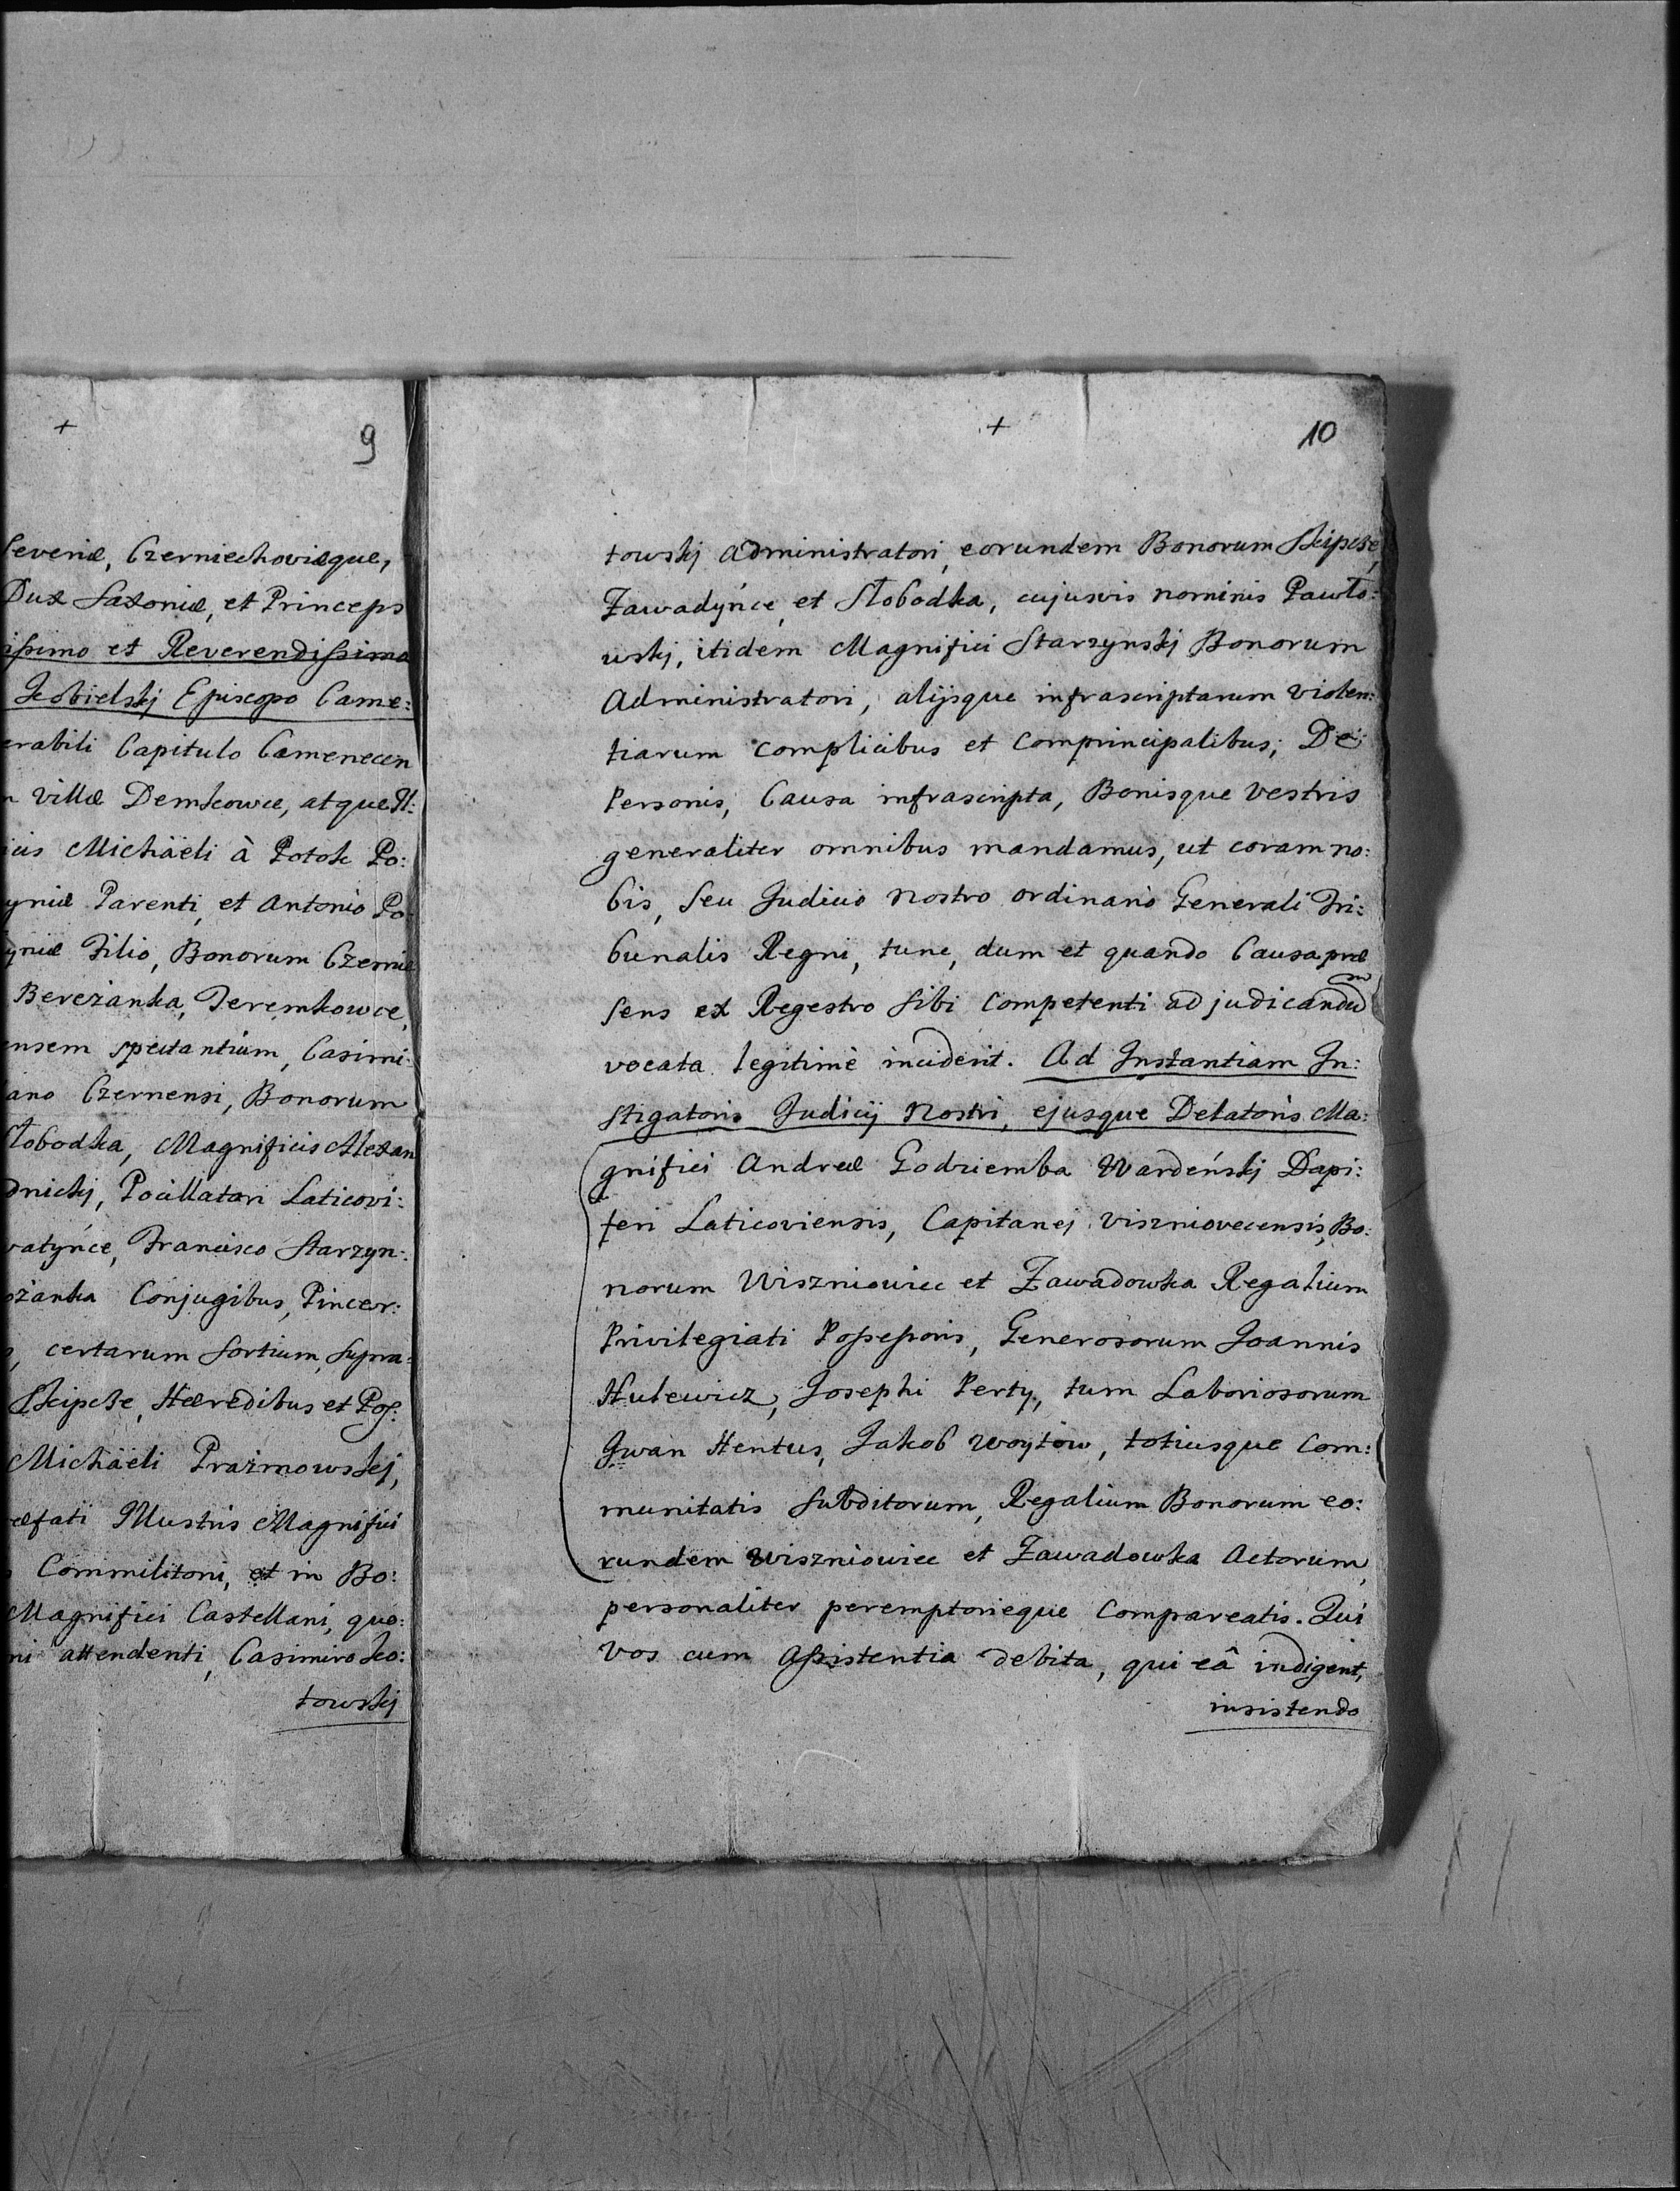 + 9
Severiæ, Czerniechoviæque,
Dux Saxoniæ, et Princeps
issimo et Reverendissimo
Kobielskj Episcopo Came:
erabili Capitulo Camenecen
villæ Demkowce, atque Il:
icis Michäeli à Potok Po:
yniæ Parenti, et Antonio Po:
yniæ Filio, Bonorum
Berezanka, Jeremkowce,
ensem spectantium, Casimi:
ano Czernensi, Bonorum
Słobodka, Magnificis Alexan
dnickj, Pocillatori Laticovi:
watyńce, Francisco Starzyn:
ożanka Conjugibus, Pincer:
certarum Sortium, Supra:
Skipcze, Hæredibus et Pos:
Michäeli Prażmowskj,
æfati Illustris Magnifici
Commilitoni, et in Bo:
Magnifici Castellani, quo:
ni attendenti, Casimiro Ko:
towskj
+ 10
towskj Administratori, eorundem Bonorum Skipcze,
Zawadyńce, et Słobodka, cujusvis nominis Pawło:
wskj, itidem Magnifici Starzynskj Bonorum
Administratori, alijsque infrascriptarum violen:
tiarum complicibus et Comprincipalibus; De
Personis, Causa infrascripta, Bonisque vestris
generaliter omnibus mandamus, ut coram no:
bis, Seu Judicio nostro ordinario Generali Tri:
bunalis Regni, tunc, dum et quando Causa præ
sens ex Regestro sibi Competenti ad judicandum
vocata legitimè inciderit. Ad Instantiam In:
stigatoris Judicij Nostri, ejusque Delatoris Ma:
gnifici Andreæ Godziemba Wardeńskj Dapi:
feri Laticoviensis, Capitanej Viszniovecensis, Bo:
norum Wiszniowiec et Zawadowka Regalium
Privilegiati Possessoris, Generosorum Joannis
Hulewicz, Josephi Perty, tum Laboriosorum
Jwan Hentus, Jakob Woytow, totiusque Com:
munitatis Subditorum, Regalium Bonorum eo:
rundem Wiszniowiec et Zawadowka Actorum,
personaliter peremptorieque Compareatis. Qui
vos cum Assistentia debita, qui eâ indigent,
insistendo